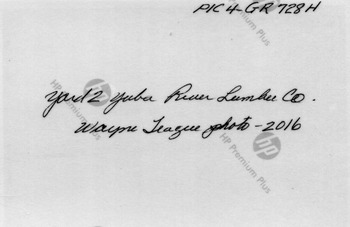 PIC 4-GR 728H
Yard 2 Yuba River Lumber Co.
Wayne Teague photo - 2016
HP Premium Plus
HP Premium Plus
HP Premium Plus